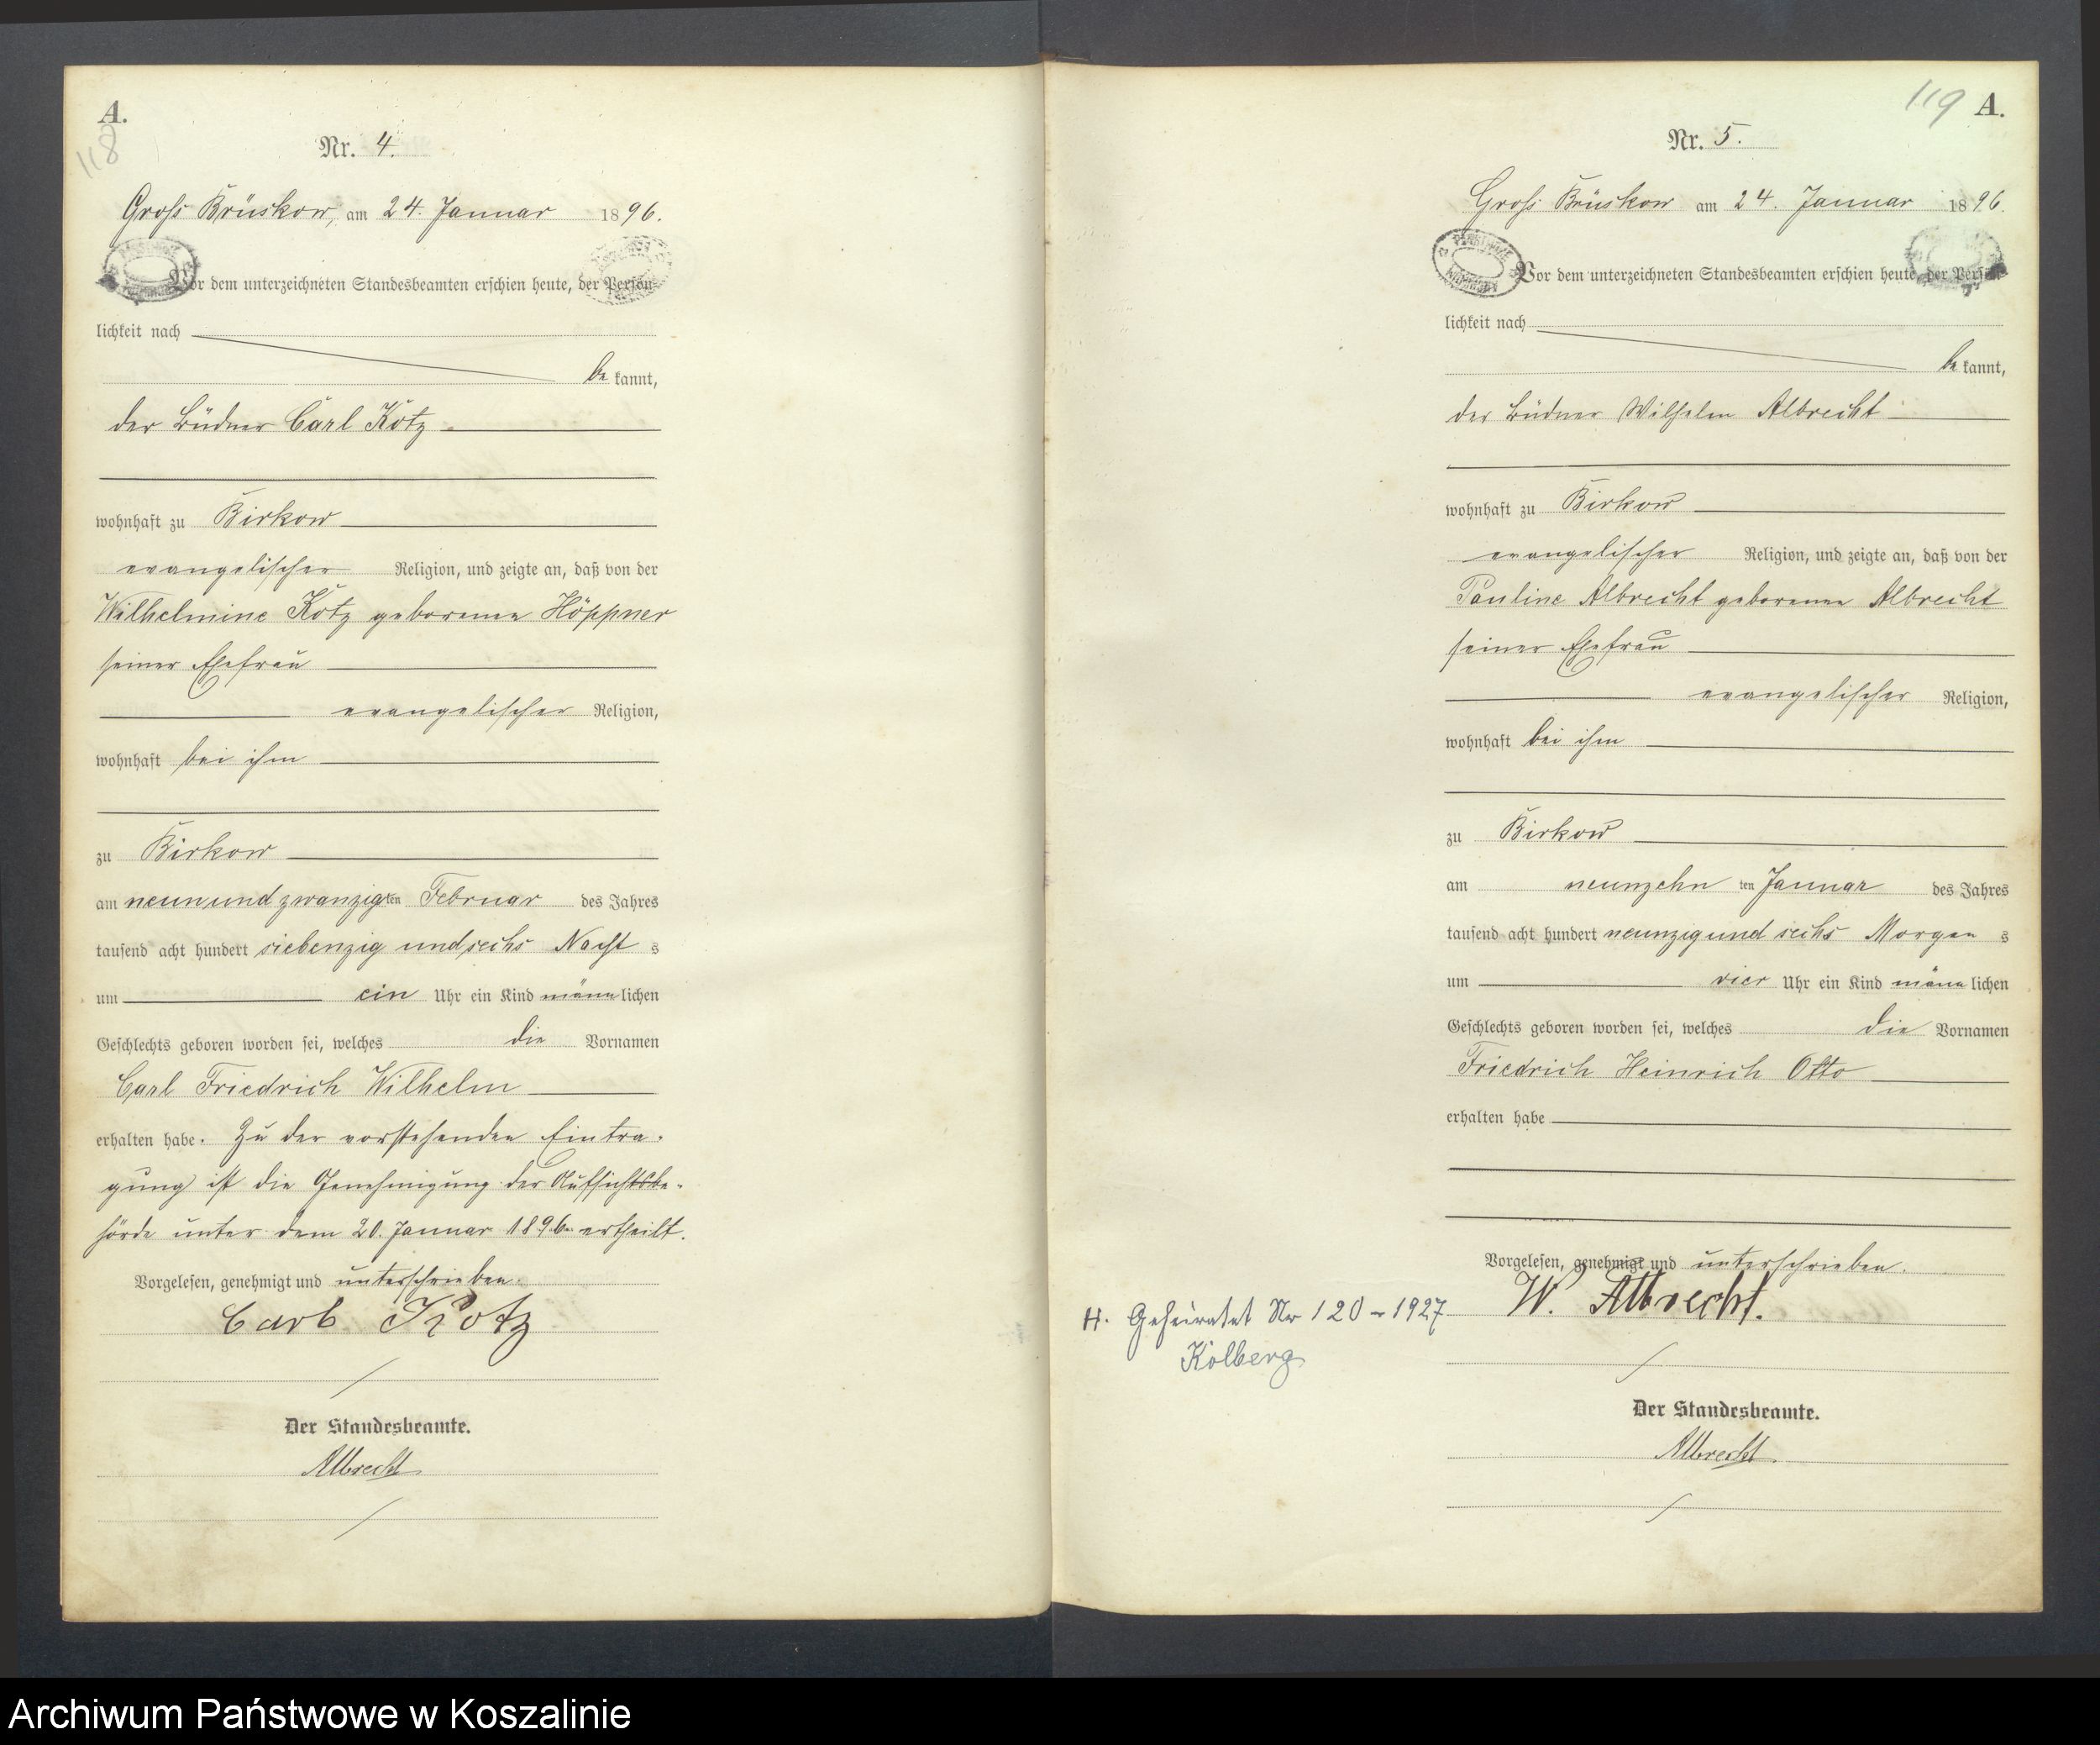 A.
118
Nr. 4.
Groß Brüskow, am 24. Januar 1896.
Vor dem unterzeichneten Standesbeamten erschien heute, der Persön-
lichkeit nach
bekannt,
der Büdner Carl Kotz
wohnhaft zu Birkow
evangelischer Religion, und zeigte an, daß von der
Wilhelmine Kotz geborenen Höppner
seiner Ehefrau
evangelischer Religion,
wohnhaft bei ihm
zu Birkow
am neunundzwanzigten Februar des Jahres
tausend acht hundert siebenzig und sechs Nachts
um ein Uhr ein Kind männlichen
Geschlechts geboren worden sei, welches die Vornamen
Carl Friedrich Wilhelm
erhalten habe. Zu der vorstehenden Eintra-
gung ist die Genehmigung der Aufsichtsbe-
hörde unter dem 20. Januar 1896 ertheilt.
Vorgelesen, genehmigt und unterschrieben.
Carl Kotz
Der Standesbeamte.
Albrecht
119 A.
Nr. 5.
Groß Brüskow am 24. Januar 1896.
Vor dem unterzeichneten Standesbeamten erschien heute, der Persön-
lichkeit nach
bekannt,
der Büdner Wilhelm Albrecht
wohnhaft zu Birkow
evangelischer Religion, und zeigte an, daß von der
Pauline Albrecht geborenen Albrecht
seiner Ehefrau
evangelischer Religion,
wohnhaft bei ihm
zu Birkow
am neunzehnten Januar des Jahres
tausend acht hundert neunzig und sechs Morgens
um vier Uhr ein Kind männlichen
Geschlechts geboren worden sei, welches die Vornamen
Friedrich Heinrich Otto
erhalten habe
Vorgelesen, genehmigt und unterschrieben.
W. Albrecht.
H. Geheiratet Nr 120 - 1927
Kolberg
Der Standesbeamte.
Albrecht.
Archiwum Państwowe w Koszalinie